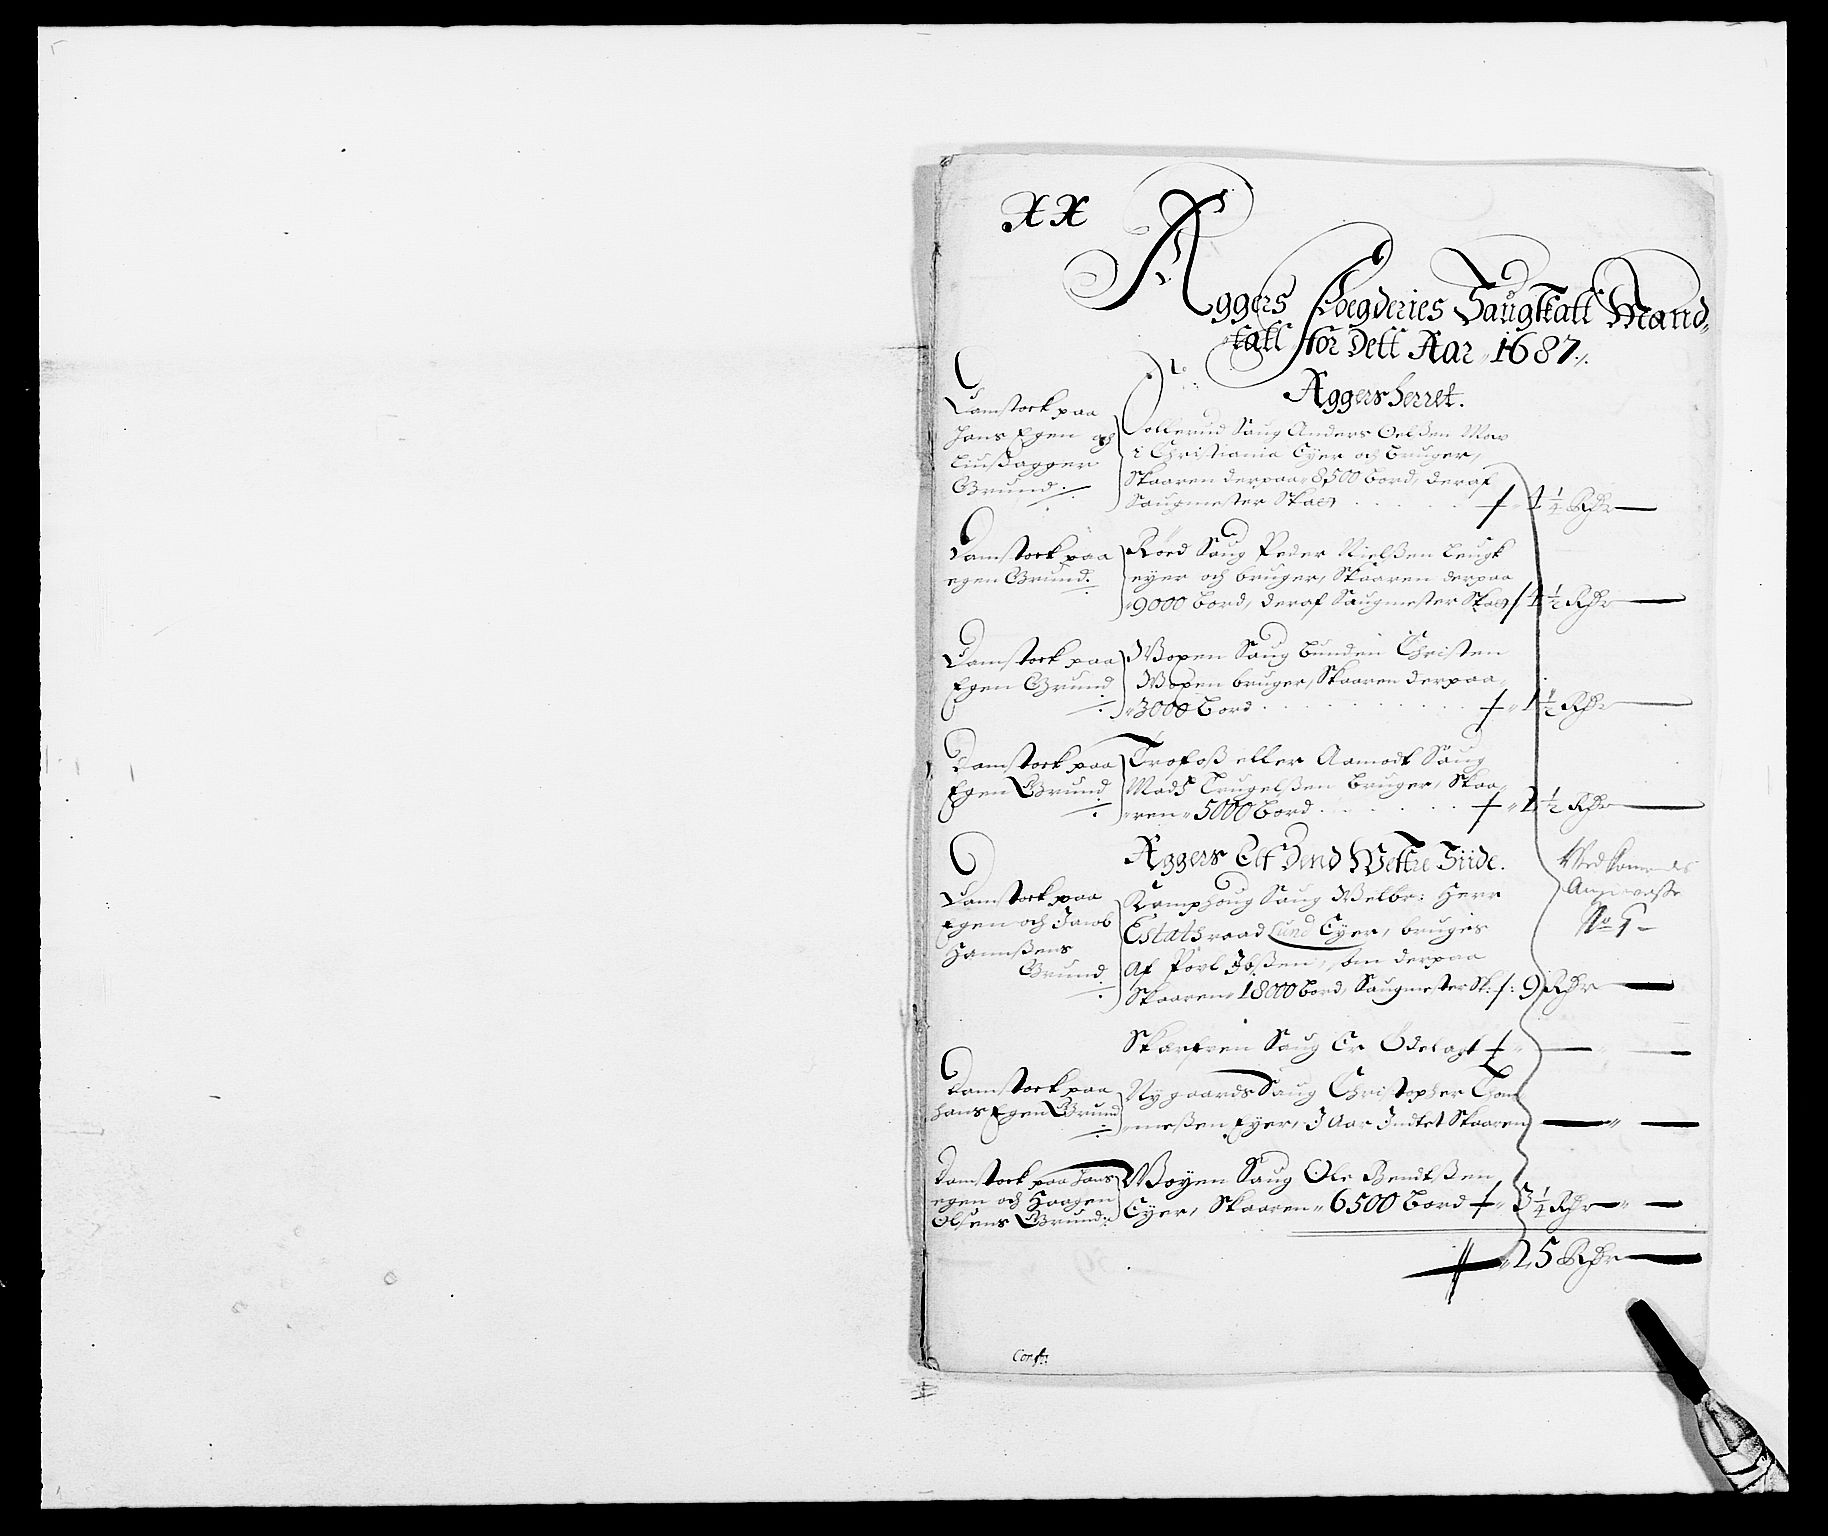 XX
Aggers Foegderies Saugskatt Mand-
tall for Dett Aar 1687 ./.
Aggersherret.
Damstock paa
hans Egen och
Liusagger
Grund ./.
Sollerud Saug Anders Oelsen Mow
i Christiania Eyer och bruger,
Skaaren derpaa 8500 bord, deraf
Saugmester Skatt 4 1/4 Rdr
Damstock paa
egen Grund ./.
Röed Saug Peder Nielßen Leugk
eyer och bruger, Skaaren derpaa
9000 bord, deraf Saugmester Skatt 4 1/2 Rdr
Damstock paa
Egen Grund
./.
Woxen Saug bunden Christen
Woxen bruger, Skaaren derpaa
3000 Bord 1 1/2 Rdr
Damstock paa
Egen Grund
./.
Trofoß eller Aamodt Saug
Mads Trugelßen bruger, Skaa-
ren 5000 Bord 2 1/2 Rdr
Aggers Elf Dend Westre Siide.
Damstock paa
Egen och Jacob
Hannßens
Grund
./.
Kamphoug Saug Welbr: Herr
Estatsraad Lund Eyer, bruges
Af Povl Ibßen, derpaa
Skaaren 18000 Bord, Saugmester Sk: 9 Rdr
No
Skarfven Saug Er Ödelagt
Damstock paa
hans Egen Grund
./.
Nygaards Saug Christopher Thom-
meßen Eyer, I Aar Indtet Skaaren
Damstock paa hans
egen och Haagen
Olsens Grund
Woyen Saug Ole Bendtßen
Eyer, Skaaren 6500 Bord 3 1/4 Rdr
25 Rdr